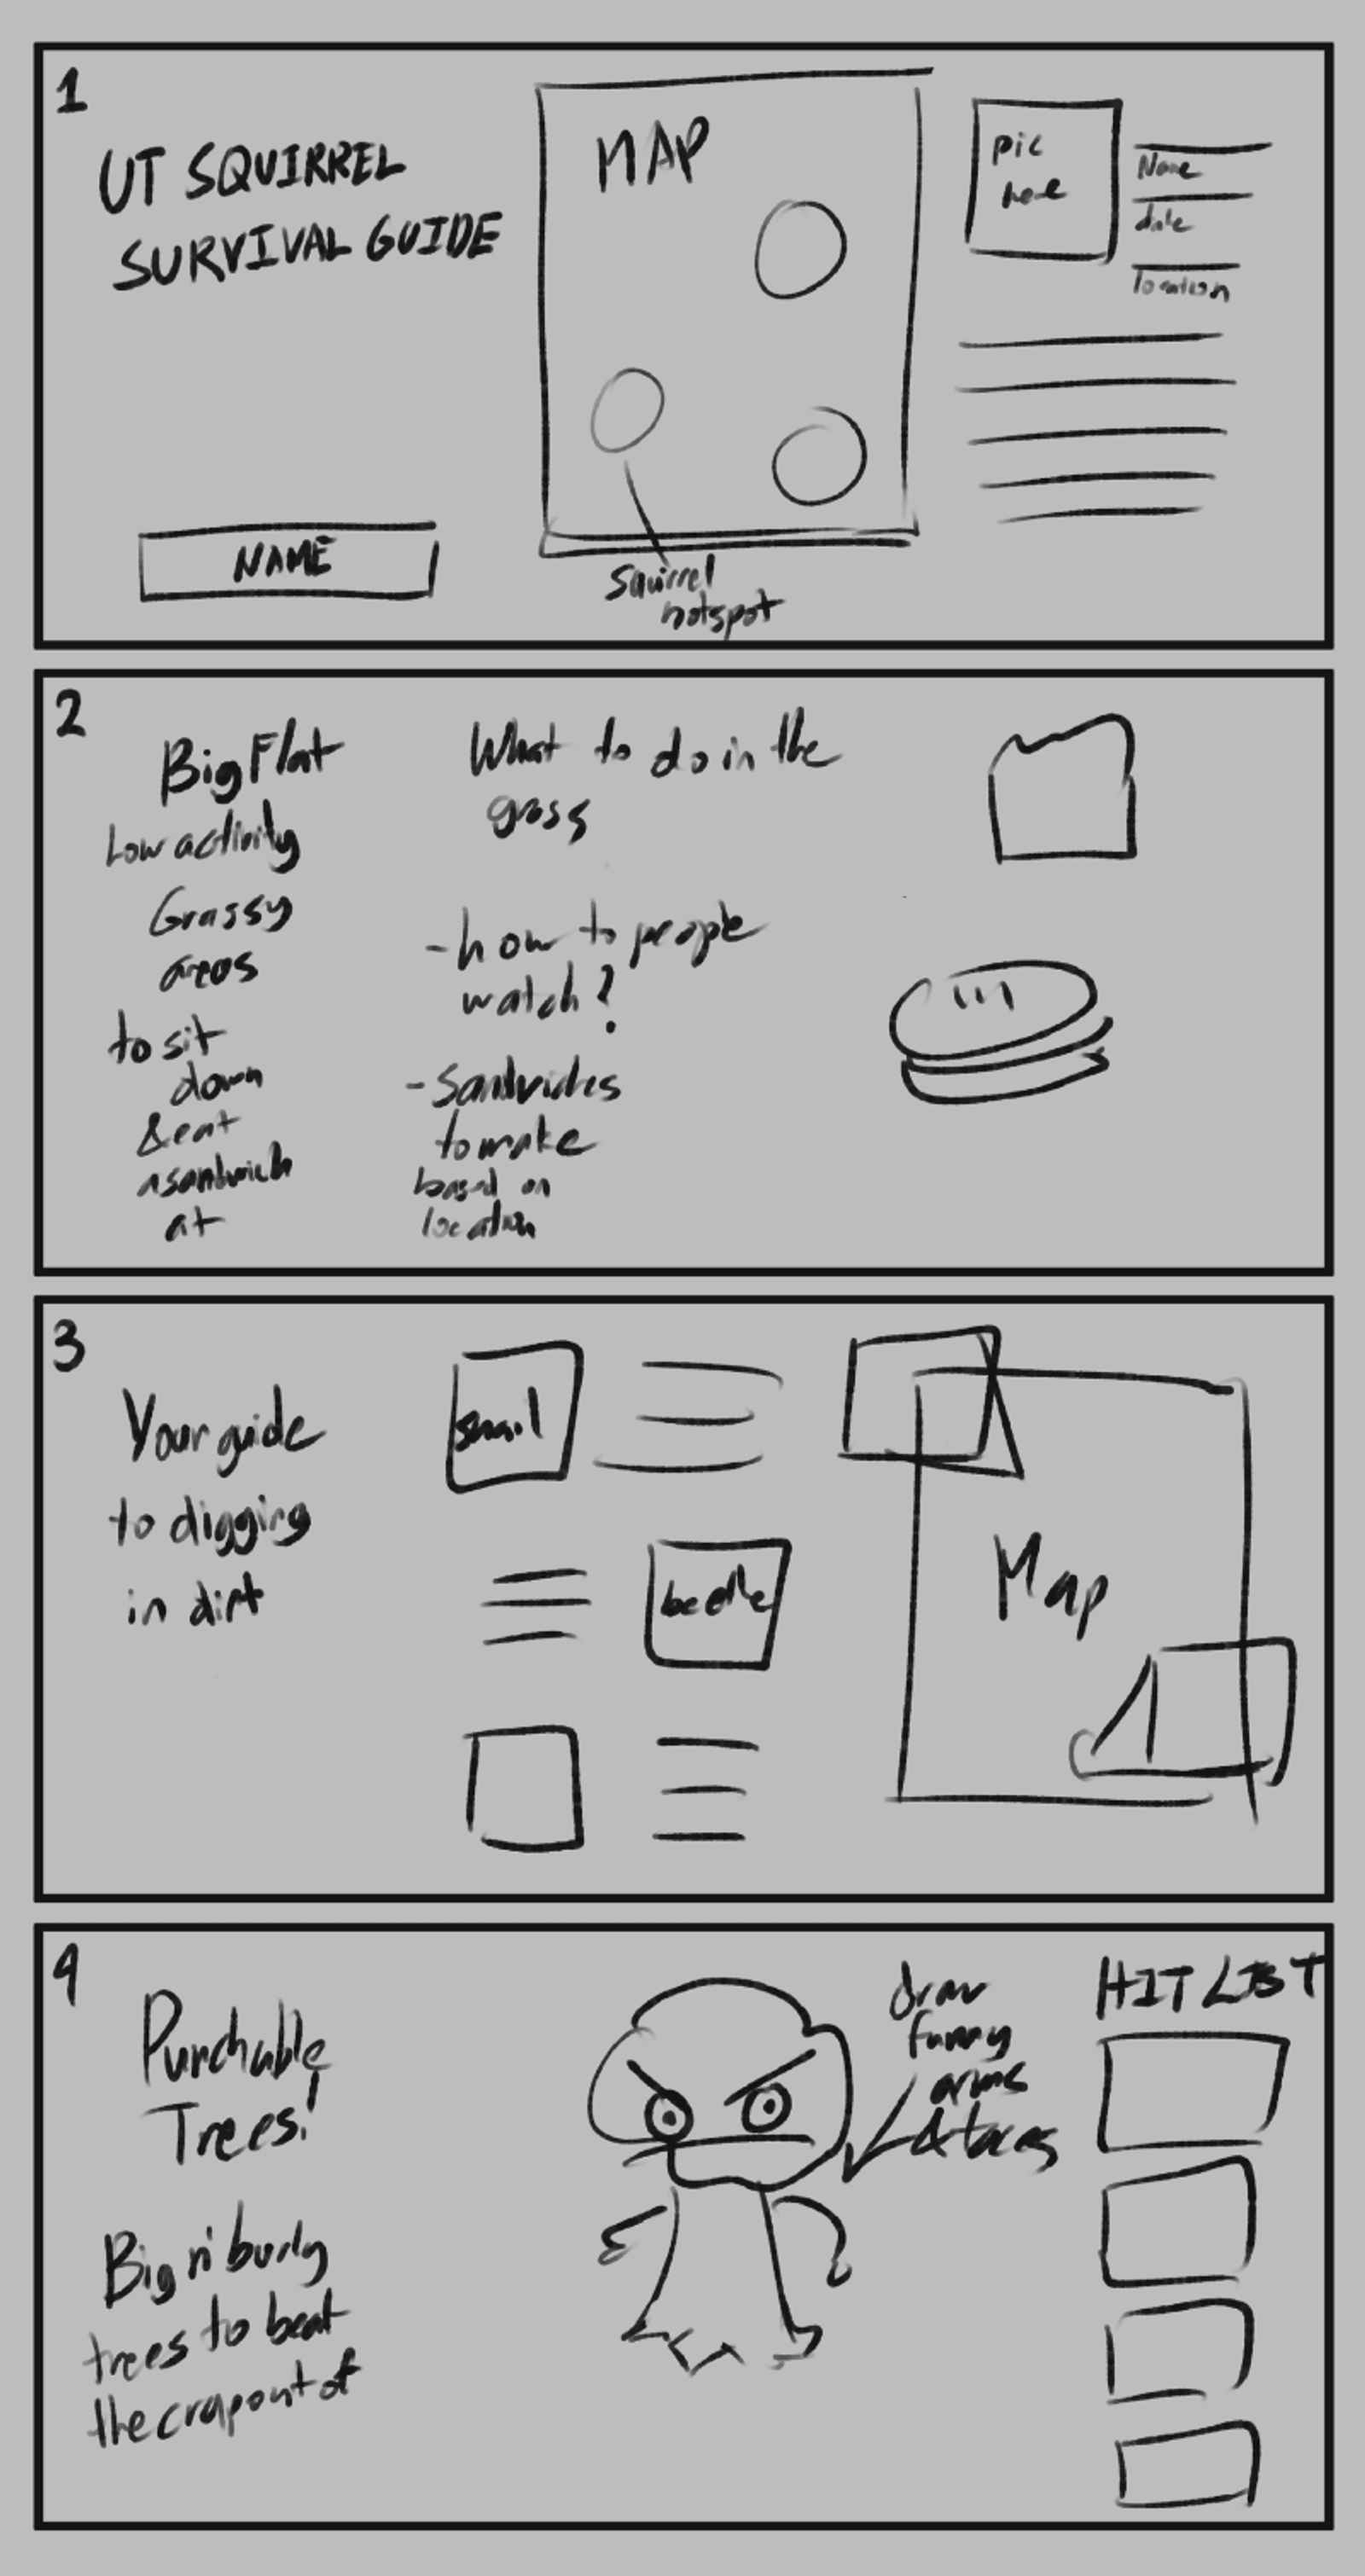 1
UT SQUIRREL
SURVIVAL GUIDE
NAME
MAP
Squirrel
hotspot
pic
here
Name
date
location
2
Big Flat
Low activity
Grassy
areas
to sit
down
& eat
a sandwich
at
What to do in the
grass
- how to people
watch?
- Sandwiches
to make
based on
location
3
Your guide
to digging
in dirt
snail
beetle
Map
4
Punchable
Trees!
Big n' burly
trees to beat
the crap out of
draw
funny
arms
& faces
HIT LIST